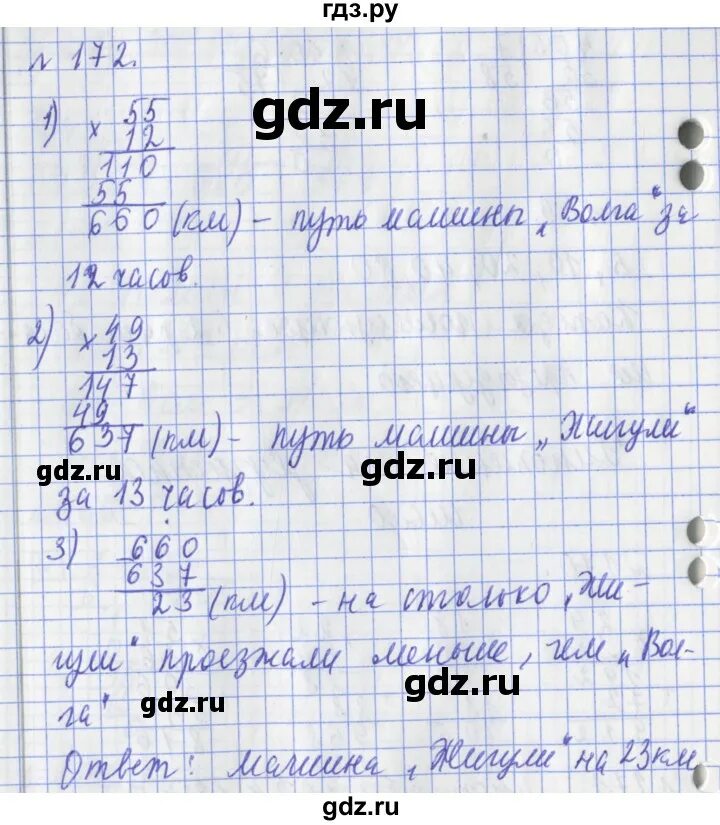 гдз.ру
№ 172.
gdz.ru
1) × 55
12
110
55
660 (км) – путь машины „Волга" за
12 часов.
2) × 49
13
147
49
637 (км) – путь машины „Жигули"
gdz.ru
gdz.ru
за 13 часов.
3) 660
637
23 (км) – на столько „Жи-
гули" проезжали меньше, чем „Вол-
gdz.ru
gdz.ru
га"
Ответ: машина „Жигули" на 23 км
gdz.ru